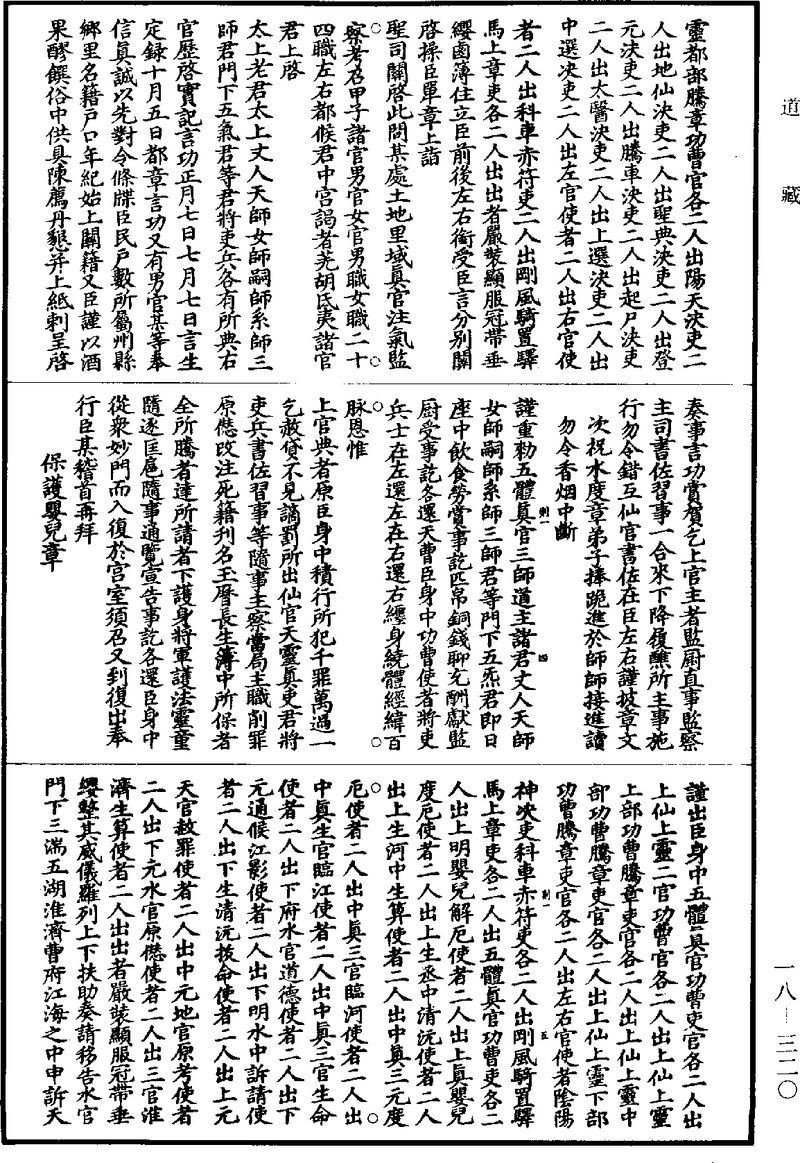 道藏
靈都部騰章功曹官各二人出陽天決吏二
人出地仙決吏二人出聖典決吏二人出登
元決吏二人出騰車決吏二人出起尸決吏
二人出太醫決吏二人出上選決吏二人出
中選決吏二人出左官使者二人出右官使
者二人出科車赤符吏二人出剛風騎置驛
馬上章吏各二人出出者嚴裝顯服冠帶垂
纓鹵簿住立臣前後左右銜受臣言分別關
啓操臣單章上詣
聖司關啓此間某處土地里域真官注氣監
察考召甲子諸官男官女官男職女職二十
四職左右都候君中宮謁者羌胡氐夷諸官
君上啓
太上老君太上丈人天師女師嗣師系師三
師君門下五氣君等君將吏兵各有所典右
官歷啓實記言功正月七日七月七日言生
定錄十月五日都章言功又有男官某等奉
信真誠以先對令條牒臣民戶數所屬州縣
鄉里名籍戶口年紀始上關籍又臣謹以酒
果醪饌俗中供具陳薦丹懇并上紙剌呈啓
奏事言功賞賀乞上官主者監厨直事監察
主司書佐習事一合來下降復醮所主事施
行勿令錯互仙官書佐在臣左右謹披章文
次投水度章弟子捧跪進於師師接進讀
勿令香烟中斷
謹重勑五體真官三師道主諸君丈人天師
女師嗣師系師三師君等門下五炁君即日
座中飲食勞賞事訖匹帛銅錢聊充酬獻監
厨受事訖各還天曹臣身中功曹使者將吏
兵士在左還左在右還右纏身繞體經緯百
脉恩惟
上官典者原臣身中積行所犯千罪萬過一
乞赦貸不見謫罰所出仙官天靈真吏君將
吏兵書佐習事等隨事主察當局主職削罪
原愆改注死籍刊名玉曆長生簿中所保者
全所騰者達所請者下護身將軍護法靈童
隨逐匡扈隨事通覽宣告事訖各還臣身中
從衆妙門而入復於宮室須召又到復出奉
行臣某稽首再拜
保護嬰兒章
謹出臣身中五體真官功曹吏官各二人出
上仙上靈二官功曹官各二人出上仙上靈
上部功曹騰章吏官各二人出上仙上靈中
部功曹騰章吏官各二人出上仙上靈下部
功曹騰章吏官各二人出左右官使者陰陽
神決吏科車赤符吏各二人出剛風騎置驛
馬上章吏各二人出五體真官功曹吏各二
人出上明嬰兒解厄使者二人出上真嬰兒
度厄使者二人出上生丞中清沅使者二人
出上生河中生算使者二人出中真三元度
厄使者二人出中真三官臨河使者二人出
中真生官臨江使者二人出中真三官生命
使者二人出下府水官道德使者二人出下
元通候江影使者二人出下明水中訴請使
者二人出下生清沅拔命使者二人出上元
天官赦罪使者二人出中元地官原考使者
二人出下元水官原愆使者二人出三官淮
濟生算使者二人出出者嚴裝顯服冠帶垂
纓整其威儀羅列上下扶助奏請移告水官
門下三湍五湖淮濟曹府江海之中申訴天
一八—三二〇